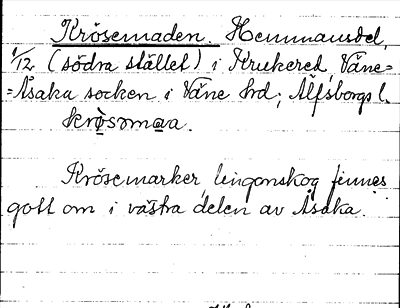 Krösemaden. Hemmansdel,
1/12 (södra stället) i Krukered, Väne=
=Åsaka socken i Väne hrd, Älfsborgs l.
krösəma̱a.
Krösemarker, lingonskog finnes
gott om i västra delen av Åsaka.